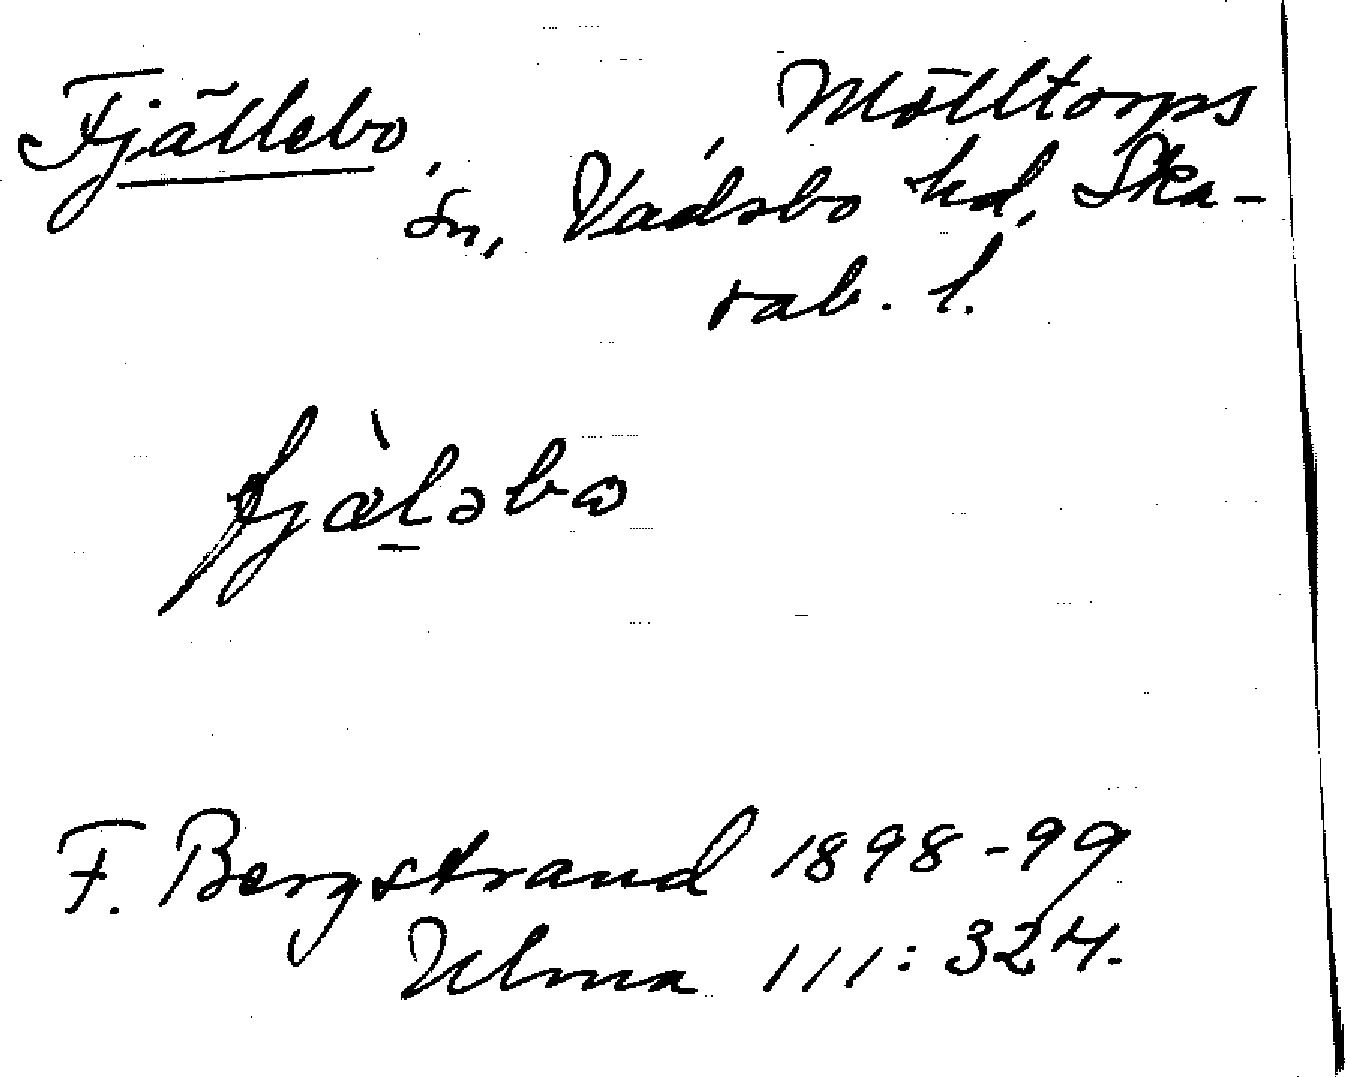 Fjällebo, Mölltorps
sn, Vadsbo hd, Ska-
rab. l.
fjàləbω
F. Bergstrand 1898-99
Ulma 111:324.